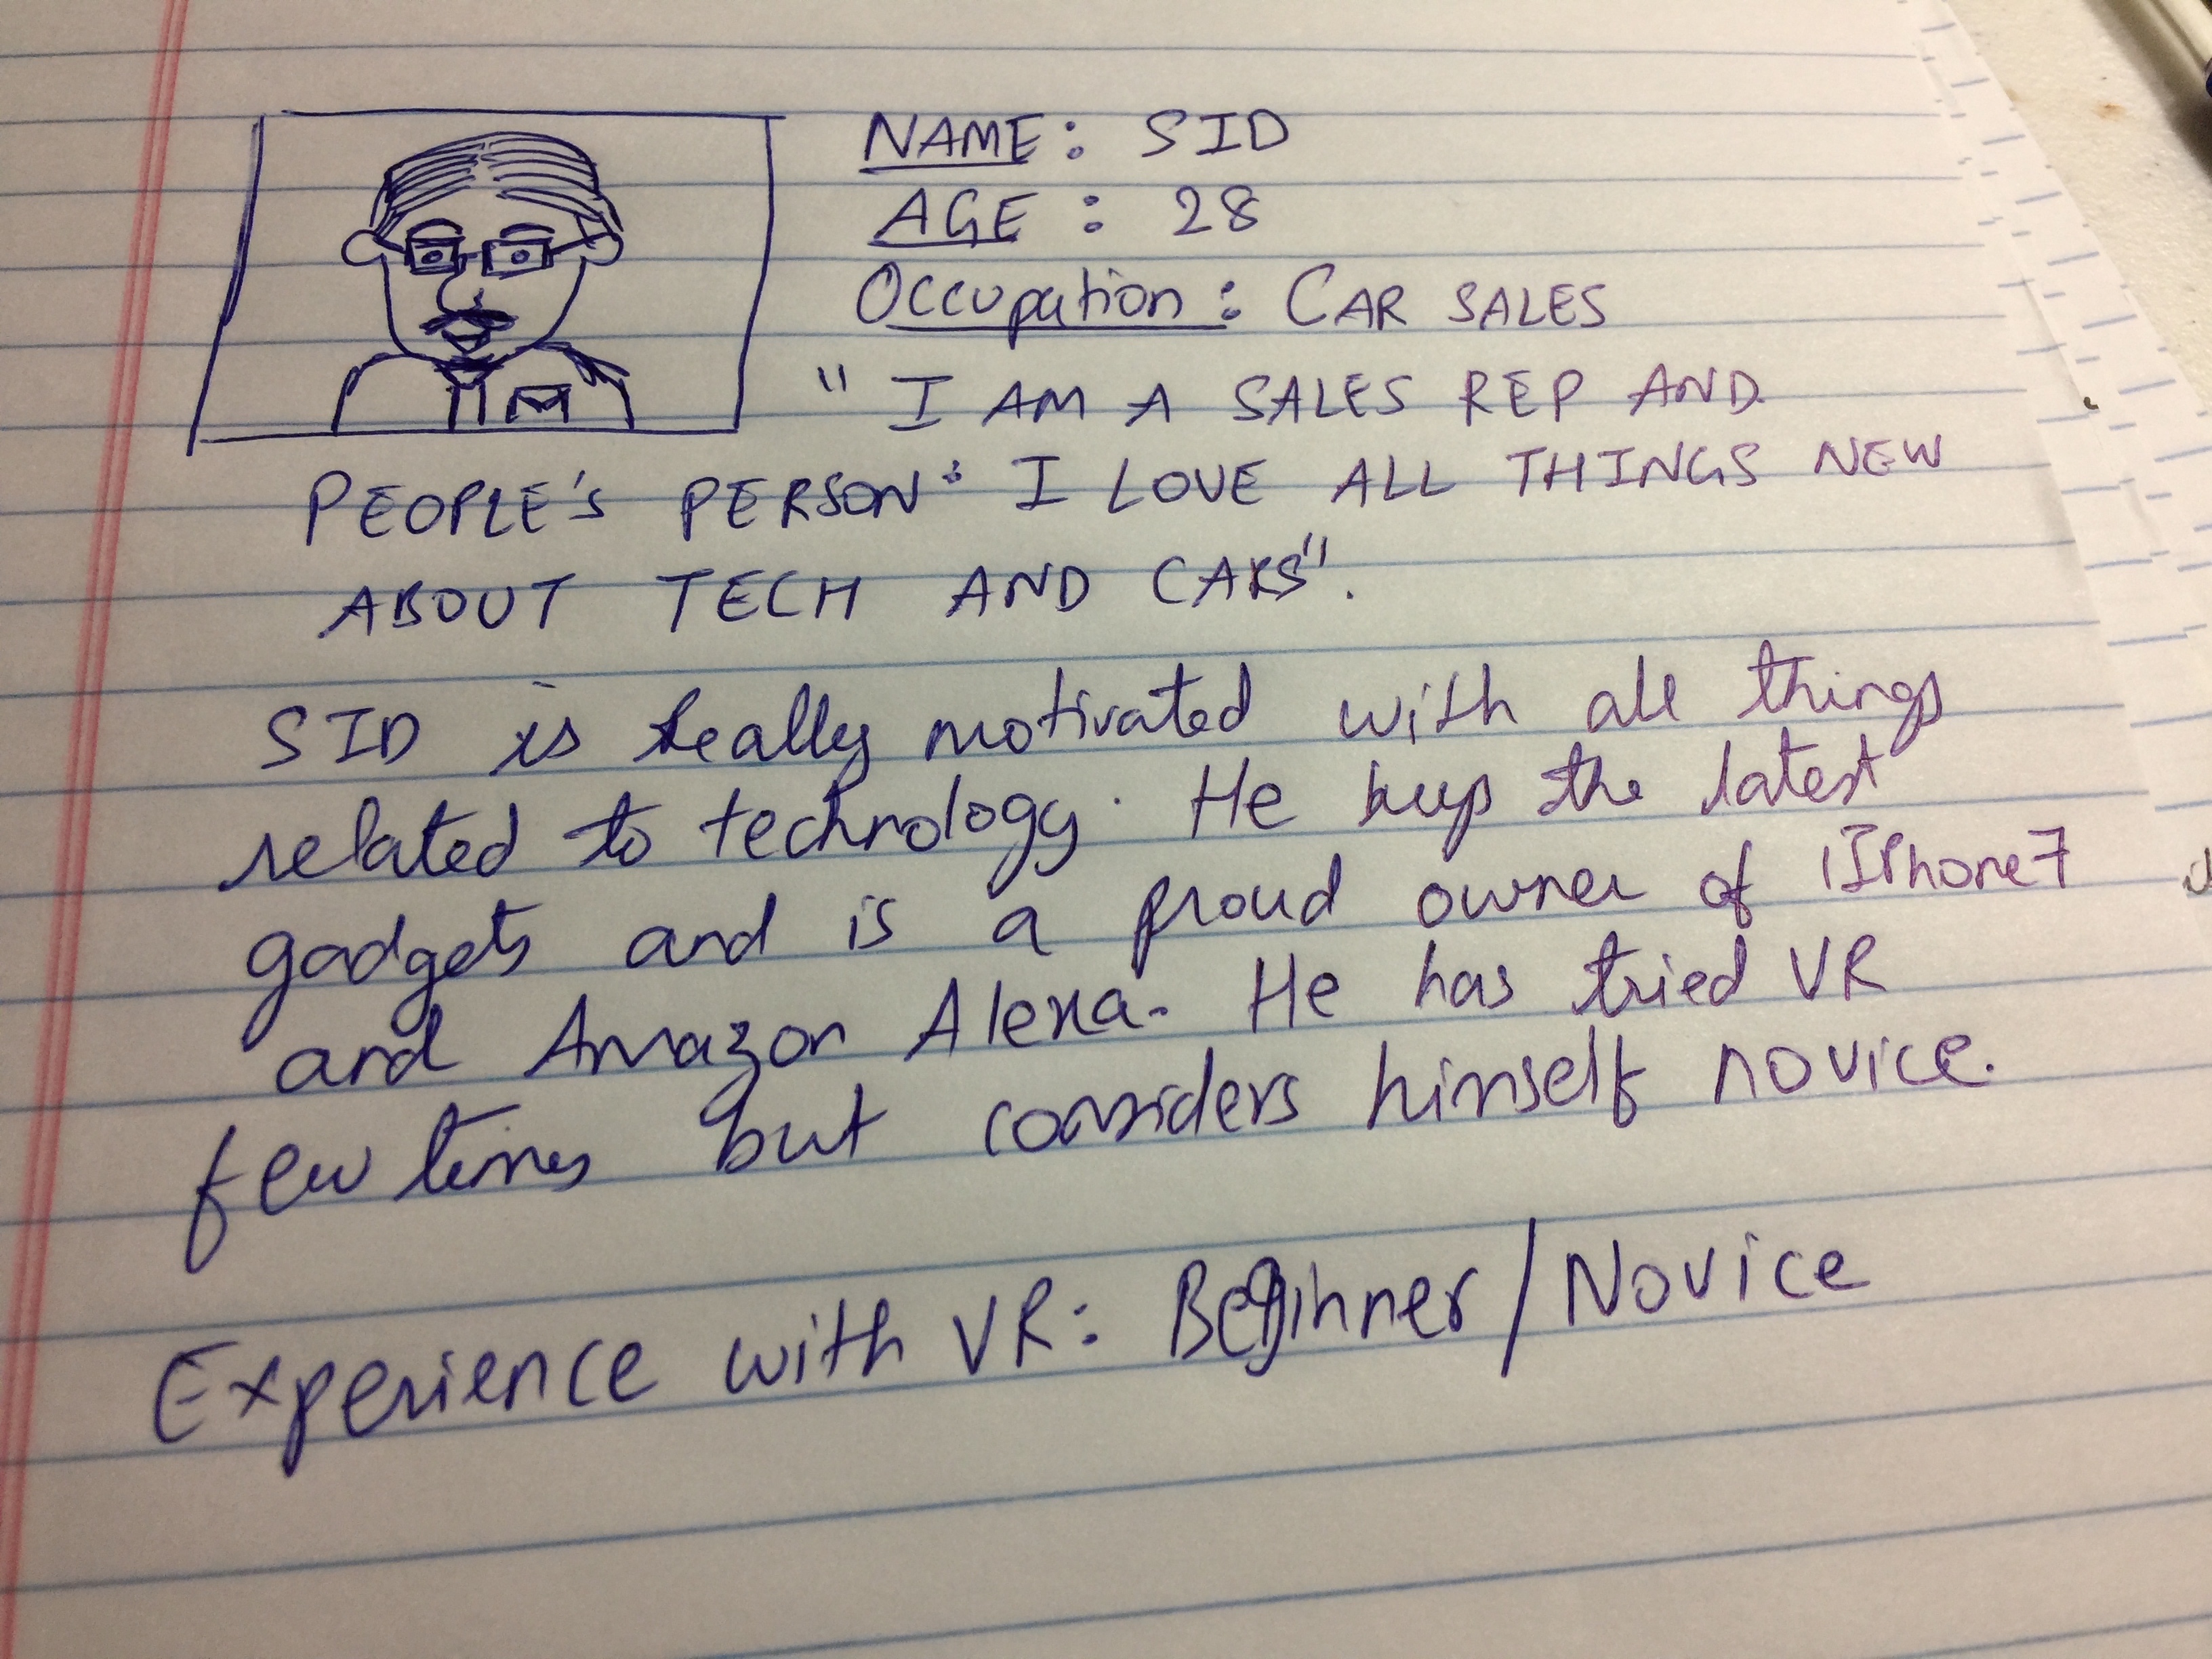 NAME: SID
AGE : 28
Occupation: CAR SALES
" I AM A SALES REP AND
PEOPLE'S PERSON. I LOVE ALL THINGS NEW
ABOUT TECH AND CARS".
SID is really motivated with all things
related to technology. He keeps the latest
gadgets and is a proud owner of IPhone7
and Amazon Alexa. He has tried VR
few times but considers himself novice.
Experience with VR: Beginner/Novice